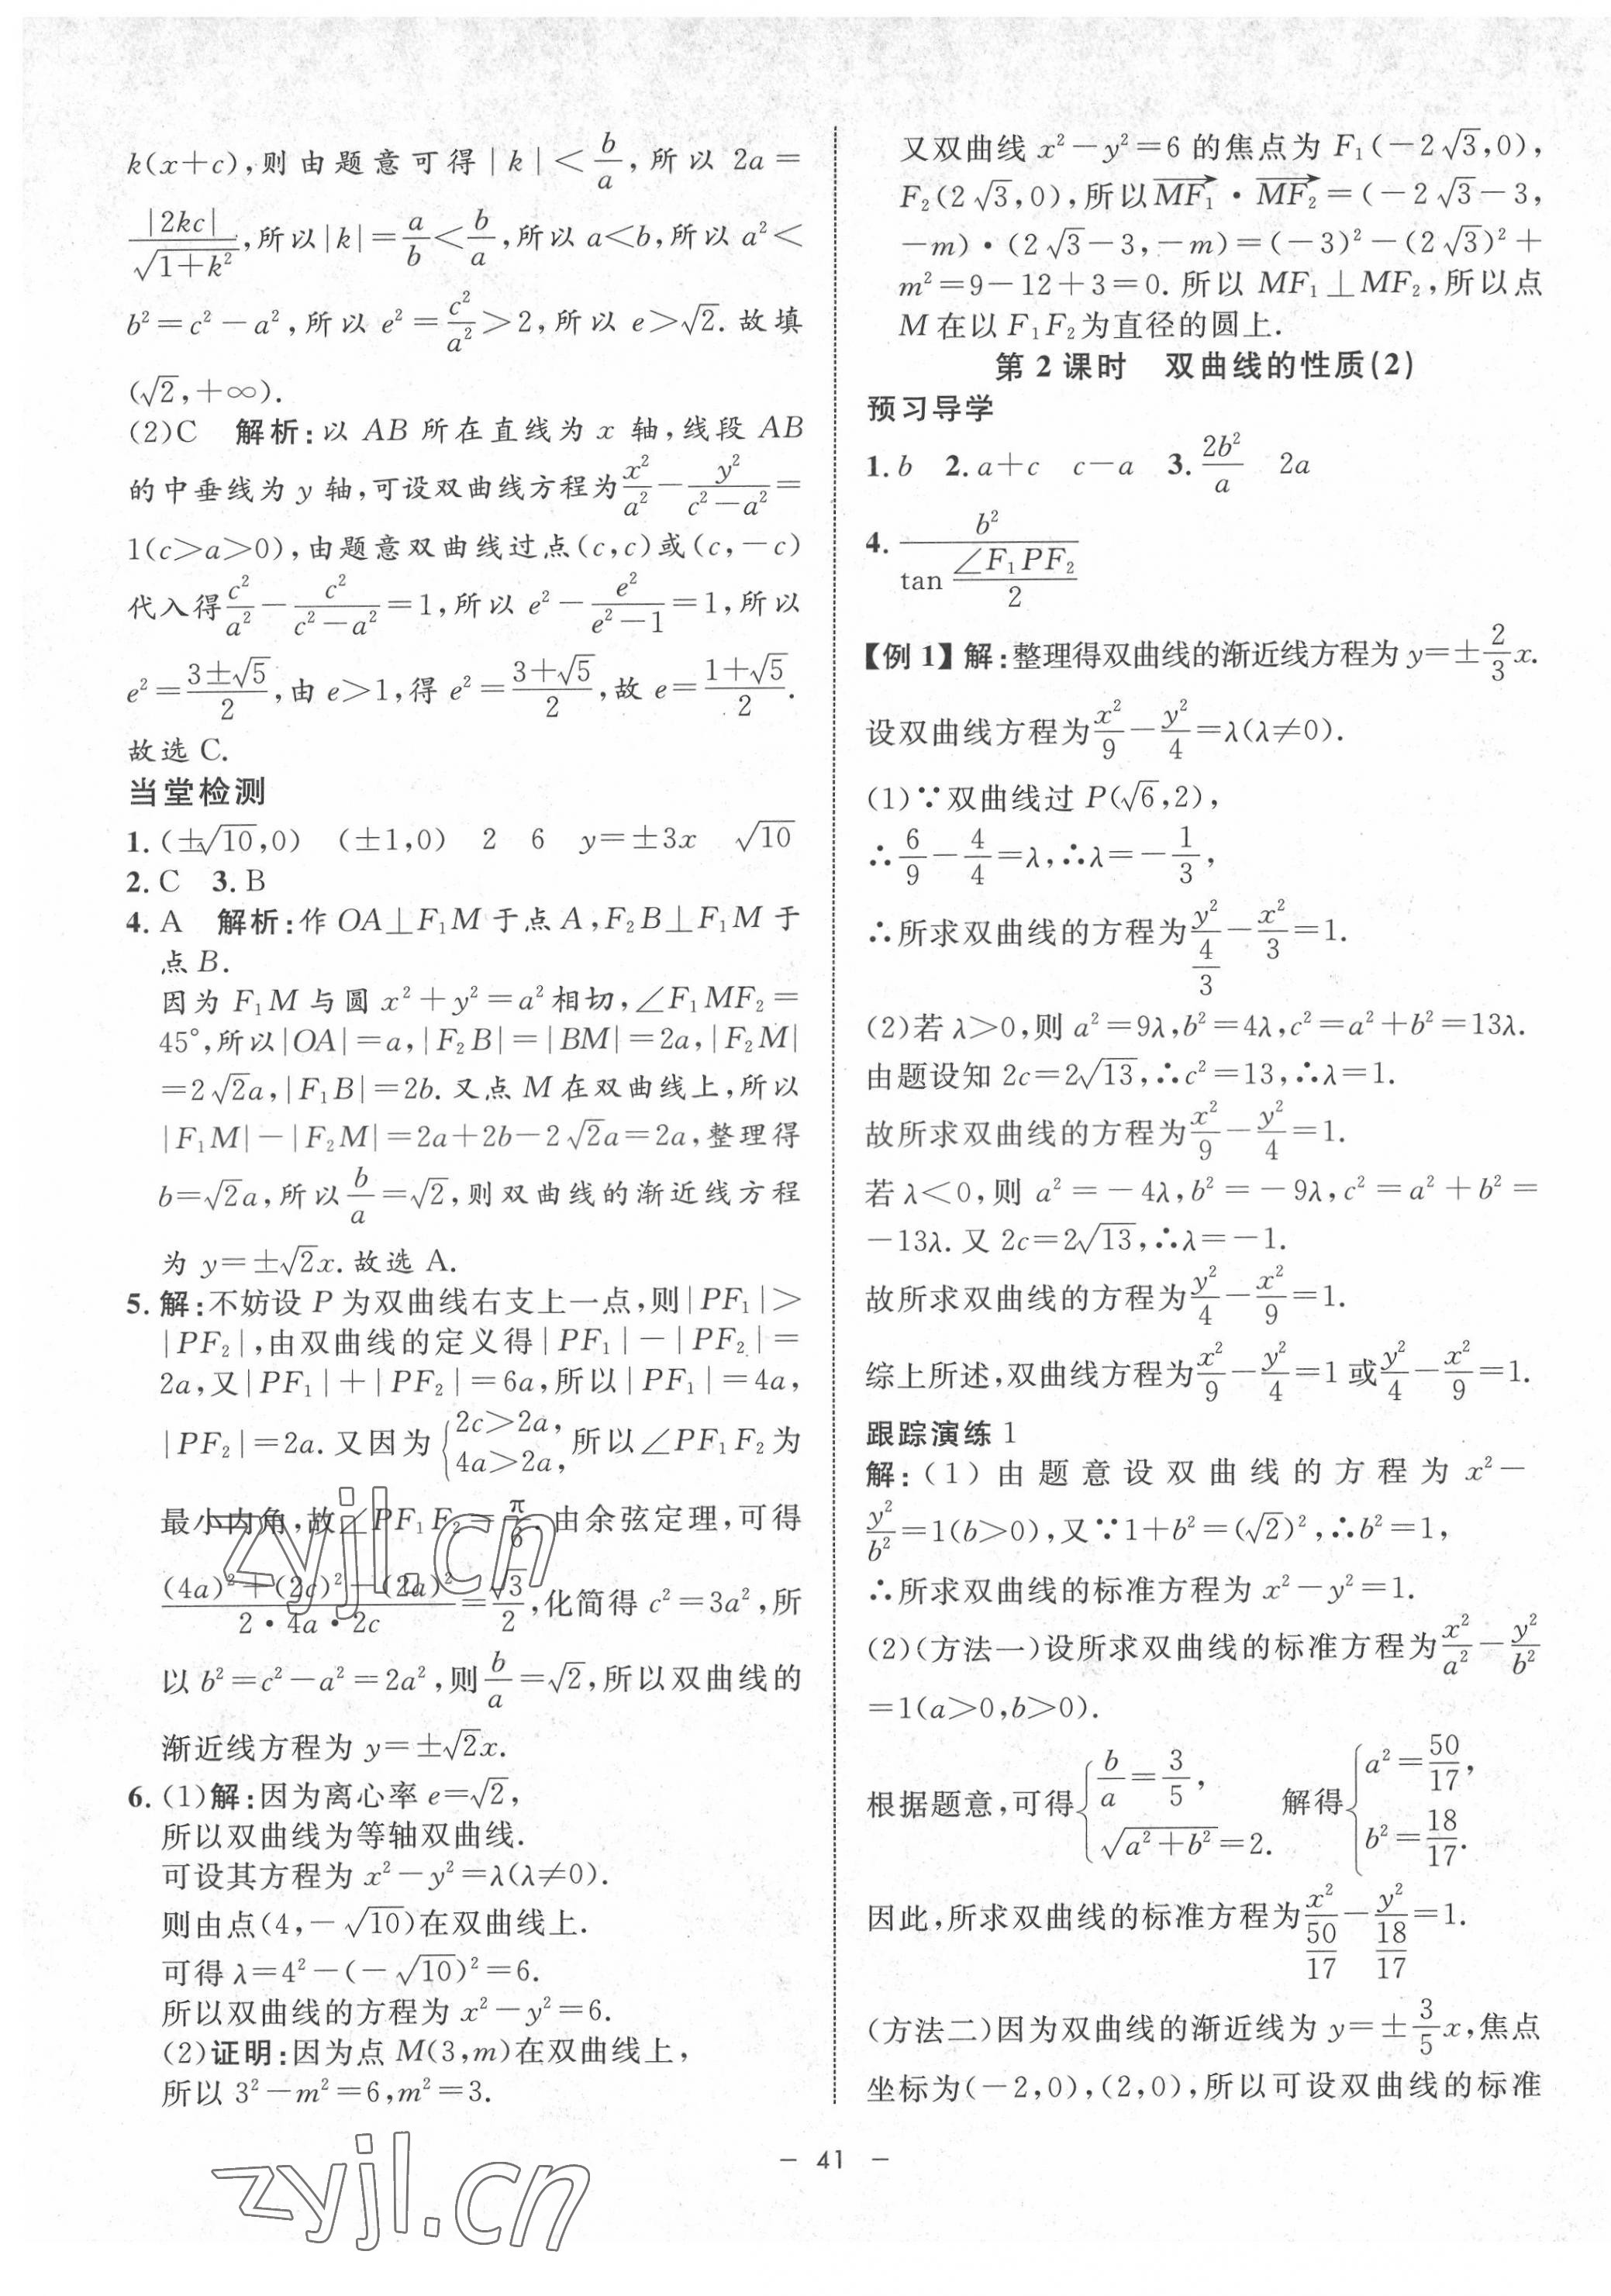 k(x+c),则由题意可得|k|<b/a,所以 2a=
|2kc|/√(1+k²),所以|k|=a/b<b/a,所以 a<b,所以 a²<
b²=c²-a²,所以 e²=c²/a²>2,所以 e>√2.故填
(√2,+∞).
(2)C 解析:以 AB 所在直线为 x 轴,线段 AB
的中垂线为 y 轴,可设双曲线方程为x²/a²-y²/(c²-a²)=
1(c>a>0),由题意双曲线过点(c,c)或(c,-c)
代入得c²/a²-c²/(c²-a²)=1,所以 e²-e²/(e²-1)=1,所以
e²=(3±√5)/2,由 e>1,得 e²=(3+√5)/2,故 e=(1+√5)/2.
故选 C.
当堂检测
1.(±√10,0) (±1,0) 2 6 y=±3x √10
2.C 3.B
4.A 解析:作 OA⊥F₁M 于点 A,F₂B⊥F₁M 于
点 B.
因为 F₁M 与圆 x²+y²=a²相切,∠F₁MF₂=
45°,所以|OA|=a,|F₂B|=|BM|=2a,|F₂M|
=2√2a,|F₁B|=2b.又点 M 在双曲线上,所以
|F₁M|-|F₂M|=2a+2b-2√2a=2a,整理得
b=√2a,所以b/a=√2,则双曲线的渐近线方程
为 y=±√2x.故选 A.
5.解:不妨设 P 为双曲线右支上一点,则|PF₁|>
|PF₂|,由双曲线的定义得|PF₁|-|PF₂|=
2a,又|PF₁|+|PF₂|=6a,所以|PF₁|=4a,
|PF₂|=2a.又因为{2c>2a, 4a>2a, 所以∠PF₁F₂为
最小内角,故∠PF₁F₂=π/6.由余弦定理,可得
((4a)²+(2c)²-(2a)²)/(2·4a·2c)=√3/2,化简得 c²=3a²,所
以 b²=c²-a²=2a²,则b/a=√2,所以双曲线的
渐近线方程为 y=±√2x.
6.(1)解:因为离心率 e=√2,
所以双曲线为等轴双曲线.
可设其方程为 x²-y²=λ(λ≠0).
则由点(4,-√10)在双曲线上.
可得 λ=4²-(-√10)²=6.
所以双曲线的方程为 x²-y²=6.
(2)证明:因为点 M(3,m)在双曲线上,
所以 3²-m²=6,m²=3.
又双曲线 x²-y²=6 的焦点为 F₁(-2√3,0),
F₂(2√3,0),所以MF₁→·MF₂→=(-2√3-3,
-m)·(2√3-3,-m)=(-3)²-(2√3)²+
m²=9-12+3=0.所以 MF₁⊥MF₂,所以点
M 在以 F₁F₂为直径的圆上.
第 2 课时 双曲线的性质(2)
预习导学
1.b 2.a+c c-a 3.2b²/a 2a
4.b²/tan(∠F₁PF₂/2)
【例 1】解:整理得双曲线的渐近线方程为 y=±2/3x.
设双曲线方程为x²/9-y²/4=λ(λ≠0).
(1)∵双曲线过 P(√6,2),
∴6/9-4/4=λ,∴λ=-1/3,
∴所求双曲线的方程为y²/(4/3)-x²/3=1.
(2)若 λ>0,则 a²=9λ,b²=4λ,c²=a²+b²=13λ.
由题设知 2c=2√13,∴c²=13,∴λ=1.
故所求双曲线的方程为x²/9-y²/4=1.
若 λ<0,则 a²=-4λ,b²=-9λ,c²=a²+b²=
-13λ.又 2c=2√13,∴λ=-1.
故所求双曲线的方程为y²/4-x²/9=1.
综上所述,双曲线方程为x²/9-y²/4=1 或y²/4-x²/9=1.
跟踪演练 1
解:(1)由题意设双曲线的方程为 x²-
y²/b²=1(b>0),又∵1+b²=(√2)²,∴b²=1,
∴所求双曲线的标准方程为 x²-y²=1.
(2)(方法一)设所求双曲线的标准方程为x²/a²-y²/b²
=1(a>0,b>0).
根据题意,可得{b/a=3/5, √(a²+b²)=2. 解得{a²=50/17, b²=18/17.
因此,所求双曲线的标准方程为x²/(50/17)-y²/(18/17)=1.
(方法二)因为双曲线的渐近线为 y=±3/5x,焦点
坐标为(-2,0),(2,0),所以可设双曲线的标准
- 41 -
zyjl.cn
zyjl.cn